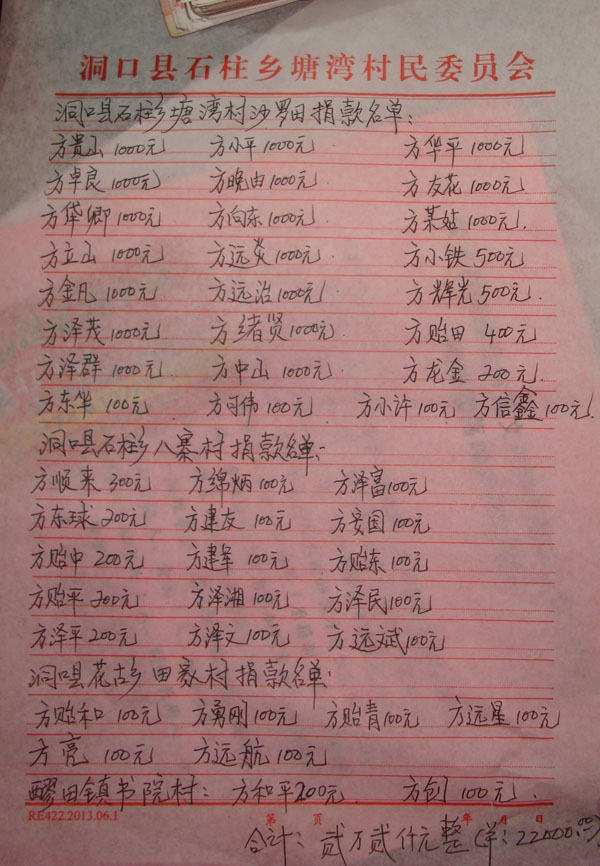 洞口县石柱乡塘湾村民委员会
洞口县石柱乡塘湾村沙罗田捐款名单：
方贵山 1000元 方小平 1000元 方华平 1000元
方卓良 1000元 方晚由 1000元 方友花 1000元
方岱卿 1000元 方向东 1000元 方某姑 1000元.
方立山 1000元 方远炎 1000元 方小铁 500元
方金凡 1000元 方远治 1000元 方辉光 500元.
方泽茂 1000元 方绪贤 1000元 方贻田 400元
方泽群 1000元 方中山 1000元 方龙金 200元.
方东华 100元 方可伟 100元 方小许 100元 方信鑫 100元.
洞口县石柱乡八寨村捐款名单：
方顺来 300元 方绵炳 100元 方泽富 100元
方东球 200元 方建友 100元 方安国 100元
方贻中 200元 方建军 100元 方贻东 100元
方贻平 200元 方泽湘 100元 方泽民 100元
方泽平 200元 方泽文 100元 方远斌 100元
洞口县花古乡田家村捐款名单：
方贻和 100元 方勇刚 100元 方贻青 100元 方远星 100元
方亮 100元 方远航 100元
醪田镇书院村：方和平 200元 方创 100元.
RE422.2013.06.1 第 页 年 月 日
合计：贰万贰仟元整（羊：22000.00）